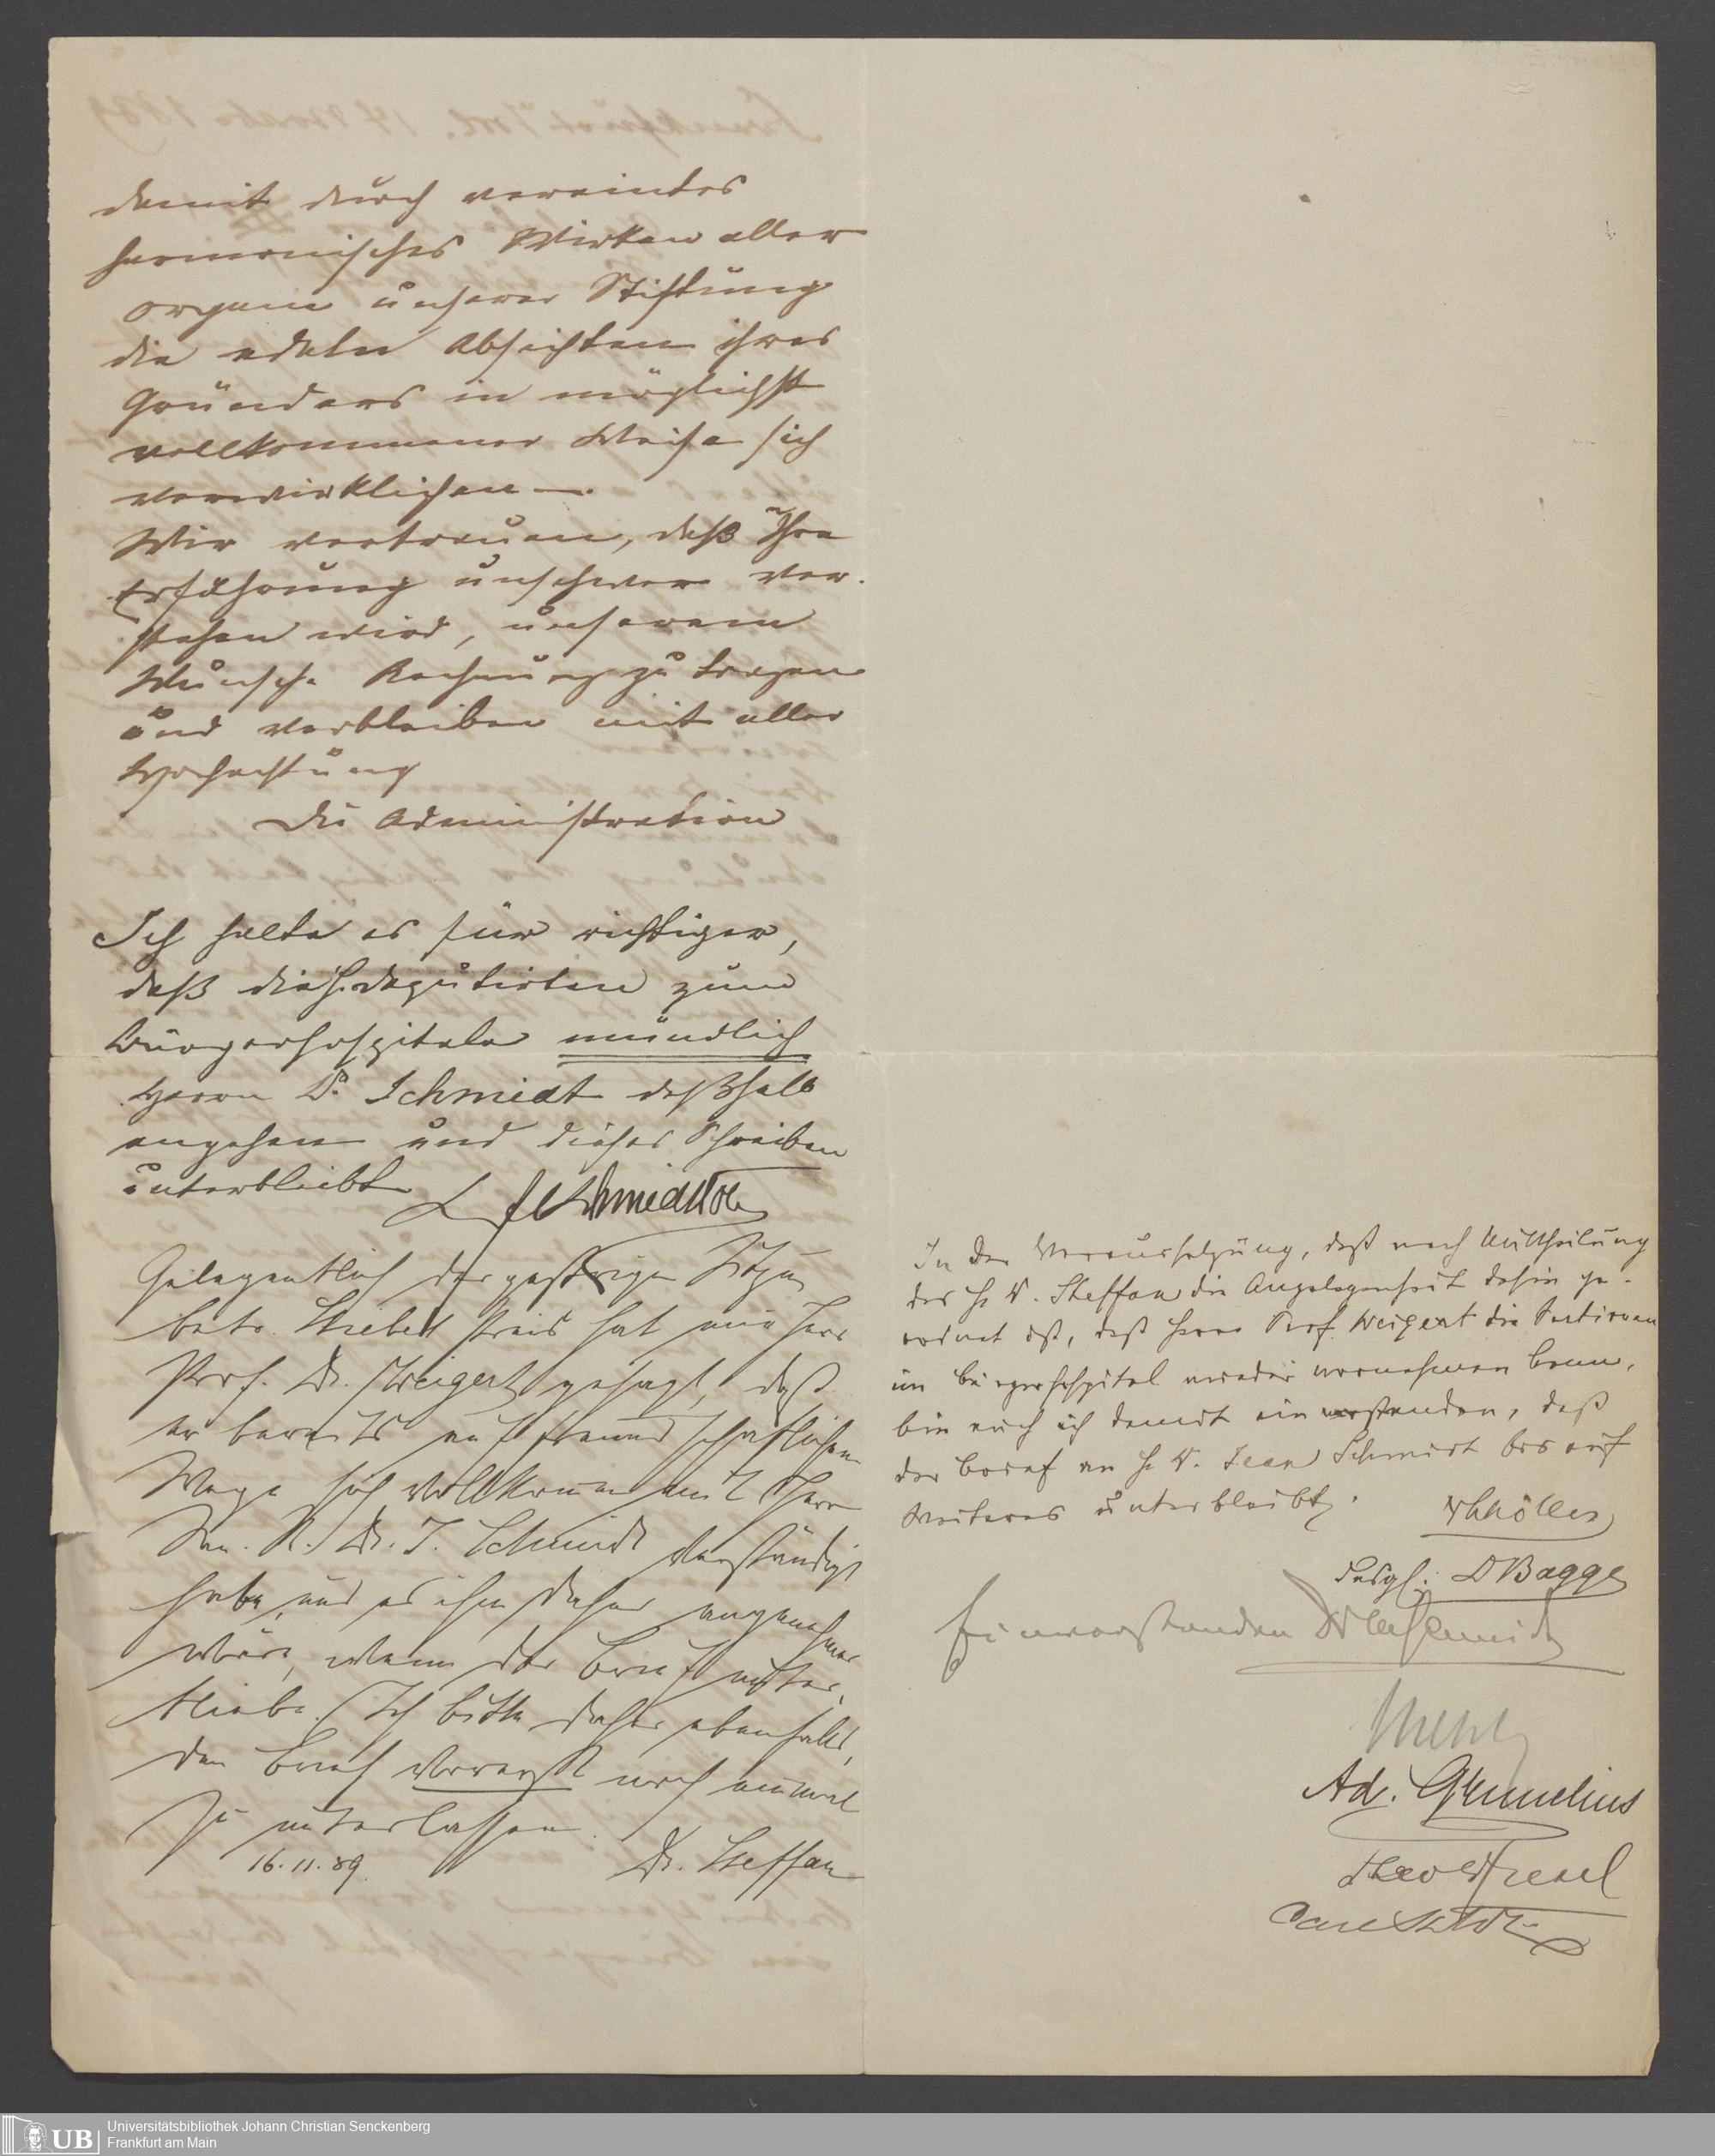 damit durch vereintes
harmonisches Wirken aller
Organe unserer Stiftung
die edelen Absichten ihres
Gründers in möglichst
vollkommener Weise sich
verwirklichen —.
Wir vertrauen, daß Ihre
Erfahrung unschwer ver-
stehen wird, unserem
Wunsche Rechnung zu tragen
und verbleiben mit aller
Hochachtung
Die Administration
Ich halte es für richtiger,
daß die H. Deputirten zum
Bürgerhospitale mündlich
Herrn Dr. Schmidt deßhalb
angehen und dieses Schreiben
unterbleibt
Gelegentlich der gestrigen Sitzung
betr. Stiebel Preis hat mir Herr
Prof. Dr. Weigert gesagt, daß
er bereits auf freundschaftlichem
Wege sich vollkommen mit Herrn
San. R. Dr. J. Schmidt verständigt
habe, und es ihm daher angenehmer
wäre, wenn der Brief unter-
bliebe. Ich bitte daher ebenfalls,
den Brief vorerst noch einmal
zu unterlassen.
16.11.89. Dr. Steffan
In der Voraussetzung, daß nach Mittheilung
des H. Dr. Steffan die Angelegenheit dahin ge-
ordnet ist, daß Herr Prof. Weigert die Sectionen
im Bürgerhospital wieder vornehmen kann,
bin auch ich damit einverstanden, daß
der Brief an H. Dr. Jean Schmidt bis auf
Weiteres unterbleibt.
desgl. D Bagge
Einverstanden
Ad. Gmelius
Universitätsbibliothek Johann Christian Senckenberg
Frankfurt am Main
UB